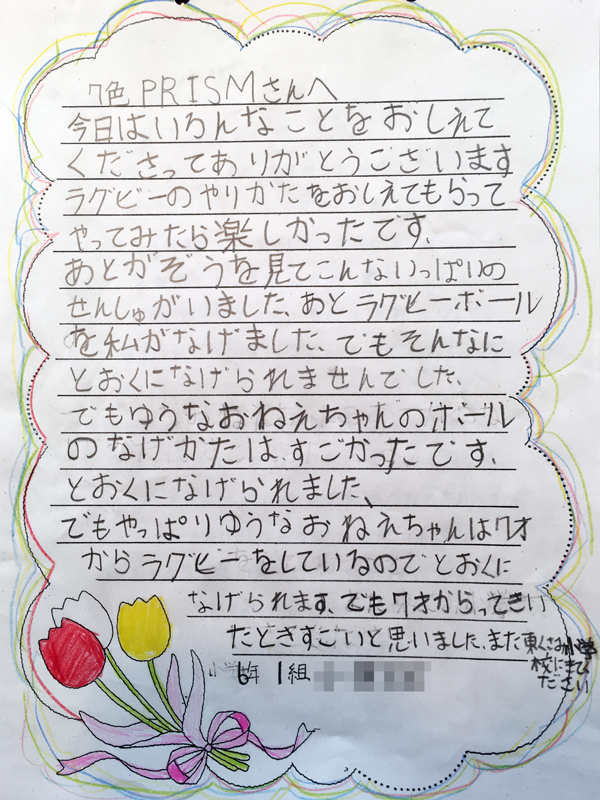 7色PRISMさんへ
今日はいろんなことをおしえて
くださってありがとうございます
ラグビーのやりかたをおしえてもらって
やってみたら楽しかったです、
あとがぞうを見てこんないっぱいの
せんしゅがいました、あとラグビーボール
を私がなげました、でもそんなに
とおくになげられませんでした、
でもゆうなおねえちゃんのボール
のなげかたは、すごかったです、
とおくになげられました、
でもやっぱりゆうなおねえちゃんは7才
からラグビーをしているのでとおくに
なげられます、でも7才からってきい
たときすごいと思いました、また東くさお小学
校にきてく
ださい
小学6年 1組